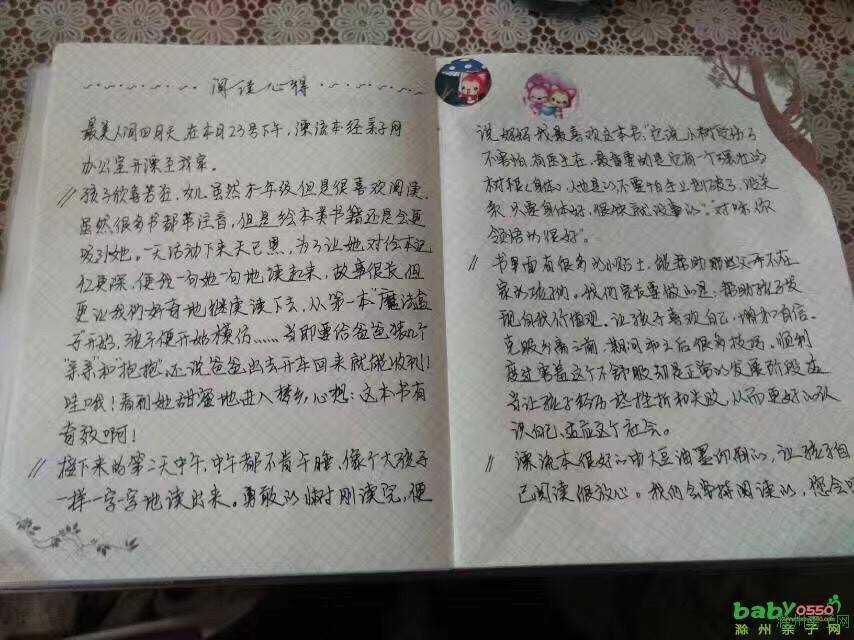 阅读心得
最美人间四月天,在本月23号下午,漂流本经亲子网
办公室开漂至我家。
孩子欣喜若狂,女儿虽然才一年级但是很喜欢阅读,
虽然很多书都带注音,但是绘本类书籍还是会更
吸引她。一天活动下来天已黑,为了让她对绘本记
忆更深,便我一句她一句地读起来,故事很长,但
更让我们好奇地继续读下去,从第一本"魔法盒
子"开始,孩子便开始模仿……当即要给爸爸装几个
"亲亲"和"抱抱",还说爸爸出去开车回来就能收到!
哇哦!看到她甜蜜地进入梦乡,心想:这本书有
奇效啊!
接下来的第二天中午,中午都不肯午睡,像个大孩子
一样一字一字地读出来。勇敢的小树刚读完,便
说妈妈我最喜欢这本书,"它说小树受伤了
不害怕,有医生在,最重要的是它有一个强壮的
树程(身体),
只要身体好,很快就没事的"。"对咪你
领悟的很好"。
书里面有很多的小贴士,能帮助那些
家的孩子们。我们家长要做的是,帮助孩子发
现自我价值观。让孩子喜欢自己,增加自信。
克服分离之前、期间和之后很多技巧。顺利
度过害羞这个不舒服却是正常的发展阶段,应
当让孩子经历些挫折和失败,从而更好的认
识自己、适应这个社会。
漂流本很好的由大豆油墨印制的,让孩子自
己阅读很放心。我们会坚持阅读的,您会吗
baby0550
滁州亲子网